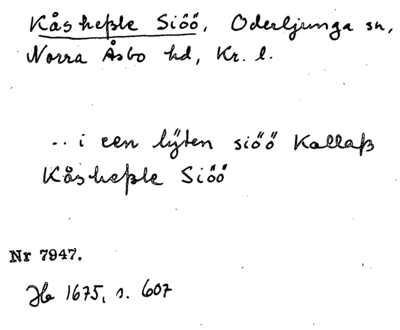 Kåsheßle Siöö, Oderljunga sn,
Norra Åsbo hd, Kr. l.
.. i een lÿten siöö Kallaß
Kåsheßle Siöö
Nr 7947.
Jb 1675, s. 607